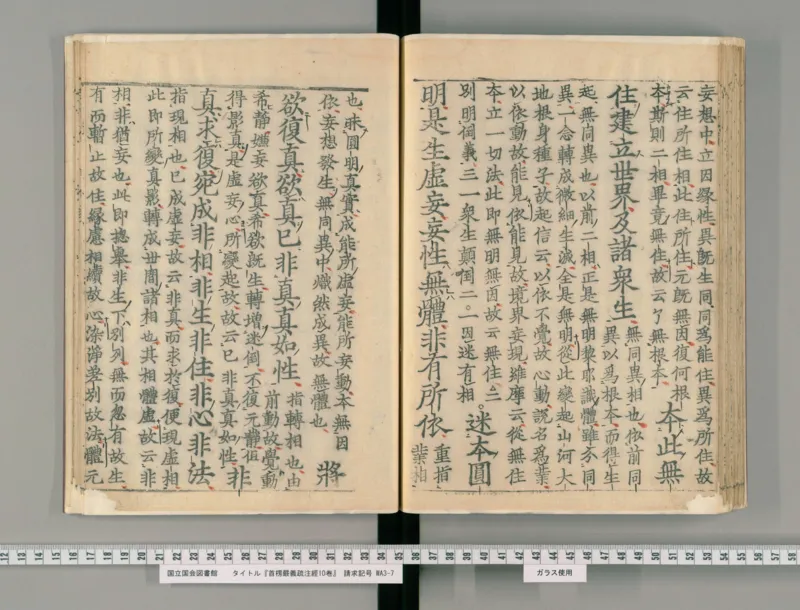 妄想中立因緣性異旣生同同爲能住異爲所住故
云住所住相此住所住元旣無因復何根
本斯則二相畢竟無住故云了無根本
本此無
住建立世界及諸衆生
無同異相也依前同
異以爲根本而得生
起無同異也以前二相正是無明黎耶識體雖分同
異一念轉成微細生滅全是無明從此變起山河大
地根身種子故起信云以依不覺故心動說名爲業
以依動故能見依能見故境界妄現維摩云從無住
本立一切法此即無明無因故云無住三
別明倒義三一衆生顚倒二○一因迷有相
○迷本圓
明是生虛妄妄性無體非有所依
重指
業相
也昧圓明眞實成能所虛妄能所妄動本無因
依妄想發生無同異中熾然成異故無體也
將
欲復眞欲眞已非眞眞如性
指轉相也由
前動故覺動
希靜嫌妄欲眞希欲旣生轉增迷倒不復元靜但
得影眞是虛妄心所變起故故云已非眞眞如性
非
眞求復宛成非相非生非住非心非法
指現相也已成虛妄故云非眞而求於復便現虛相
此即所變眞影轉成世間諸相也其相體虛故云非
相非猶妄也此即摠擧非生下別列無而忽有故生
有而暫止故住緣慮相續故心染淨差別故法體元
国立国会図書館 タイトル『首楞嚴義疏注經10巻』 請求記号 WA3-7
ガラス使用
12 13 14 15 16 17 18 19 20 21 22 23 24 25 26 27 28 29 30 31 32 33 34 35 36 37 38 39 40 41 42 43 44 45 46 47 48 49 50 51 52 53 54 55 56 57 58